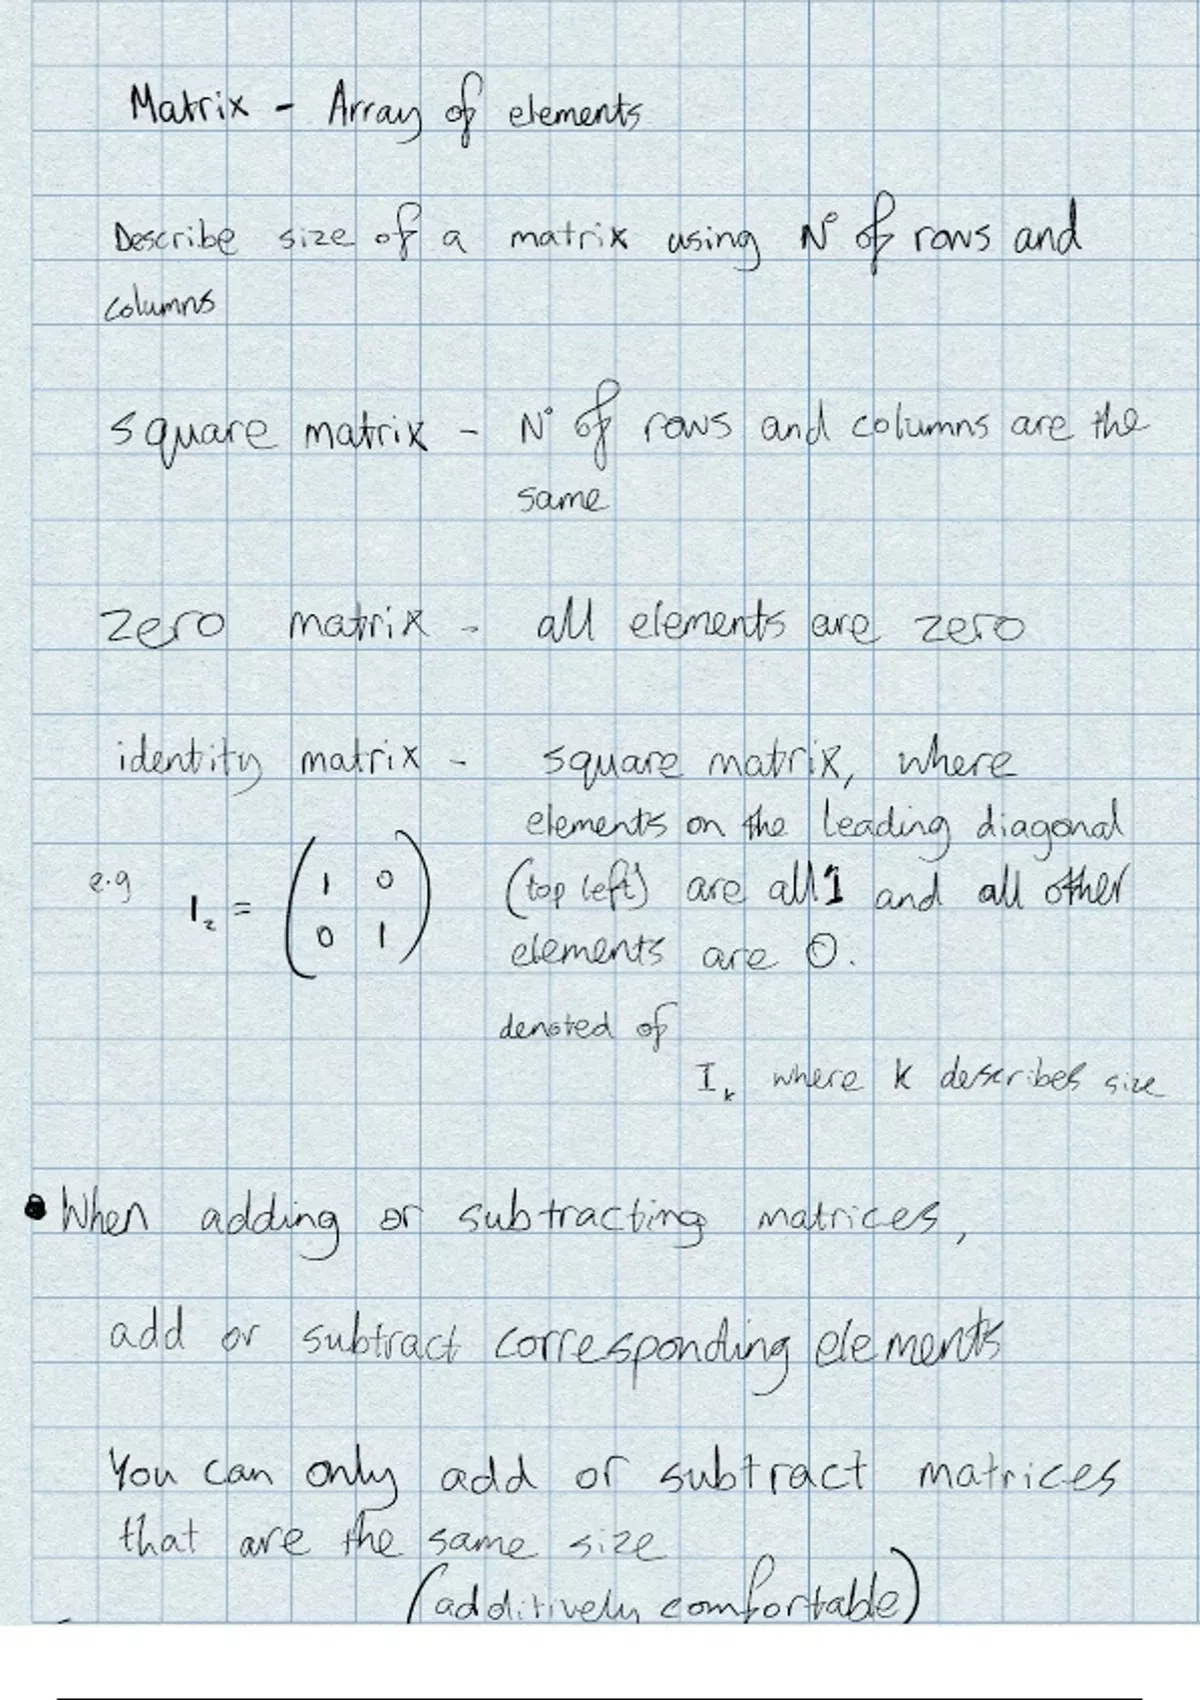 Matrix - Array of elements
Describe size of a matrix using N° of rows and
columns
square matrix - N° of rows and columns are the
same
zero matrix - all elements are zero
identity matrix - square matrix, where
elements on the leading diagonal
e.g I₂ = (1 0
0 1)
(top left) are all 1 and all other
elements are 0.
denoted of
Iₖ where k describes size
• When adding or subtracting matrices,
add or subtract corresponding elements
You can only add or subtract matrices
that are the same size
(additively comfortable)